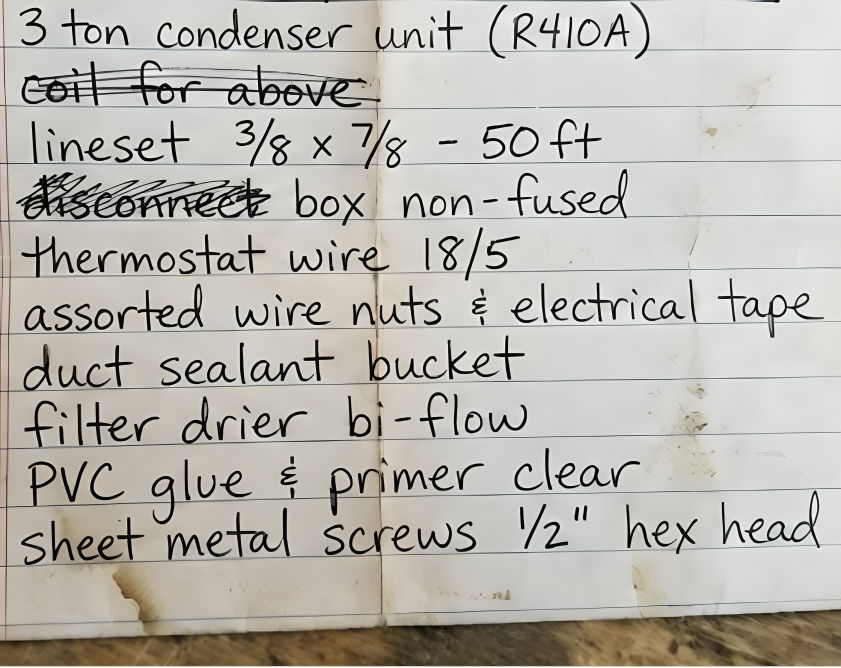 3 ton condenser unit (R410A)
coil for above
lineset 3/8 x 7/8 - 50 ft
disconnect box non-fused
thermostat wire 18/5
assorted wire nuts & electrical tape
duct sealant bucket
filter drier bi-flow
PVC glue & primer clear
sheet metal screws 1/2" hex head